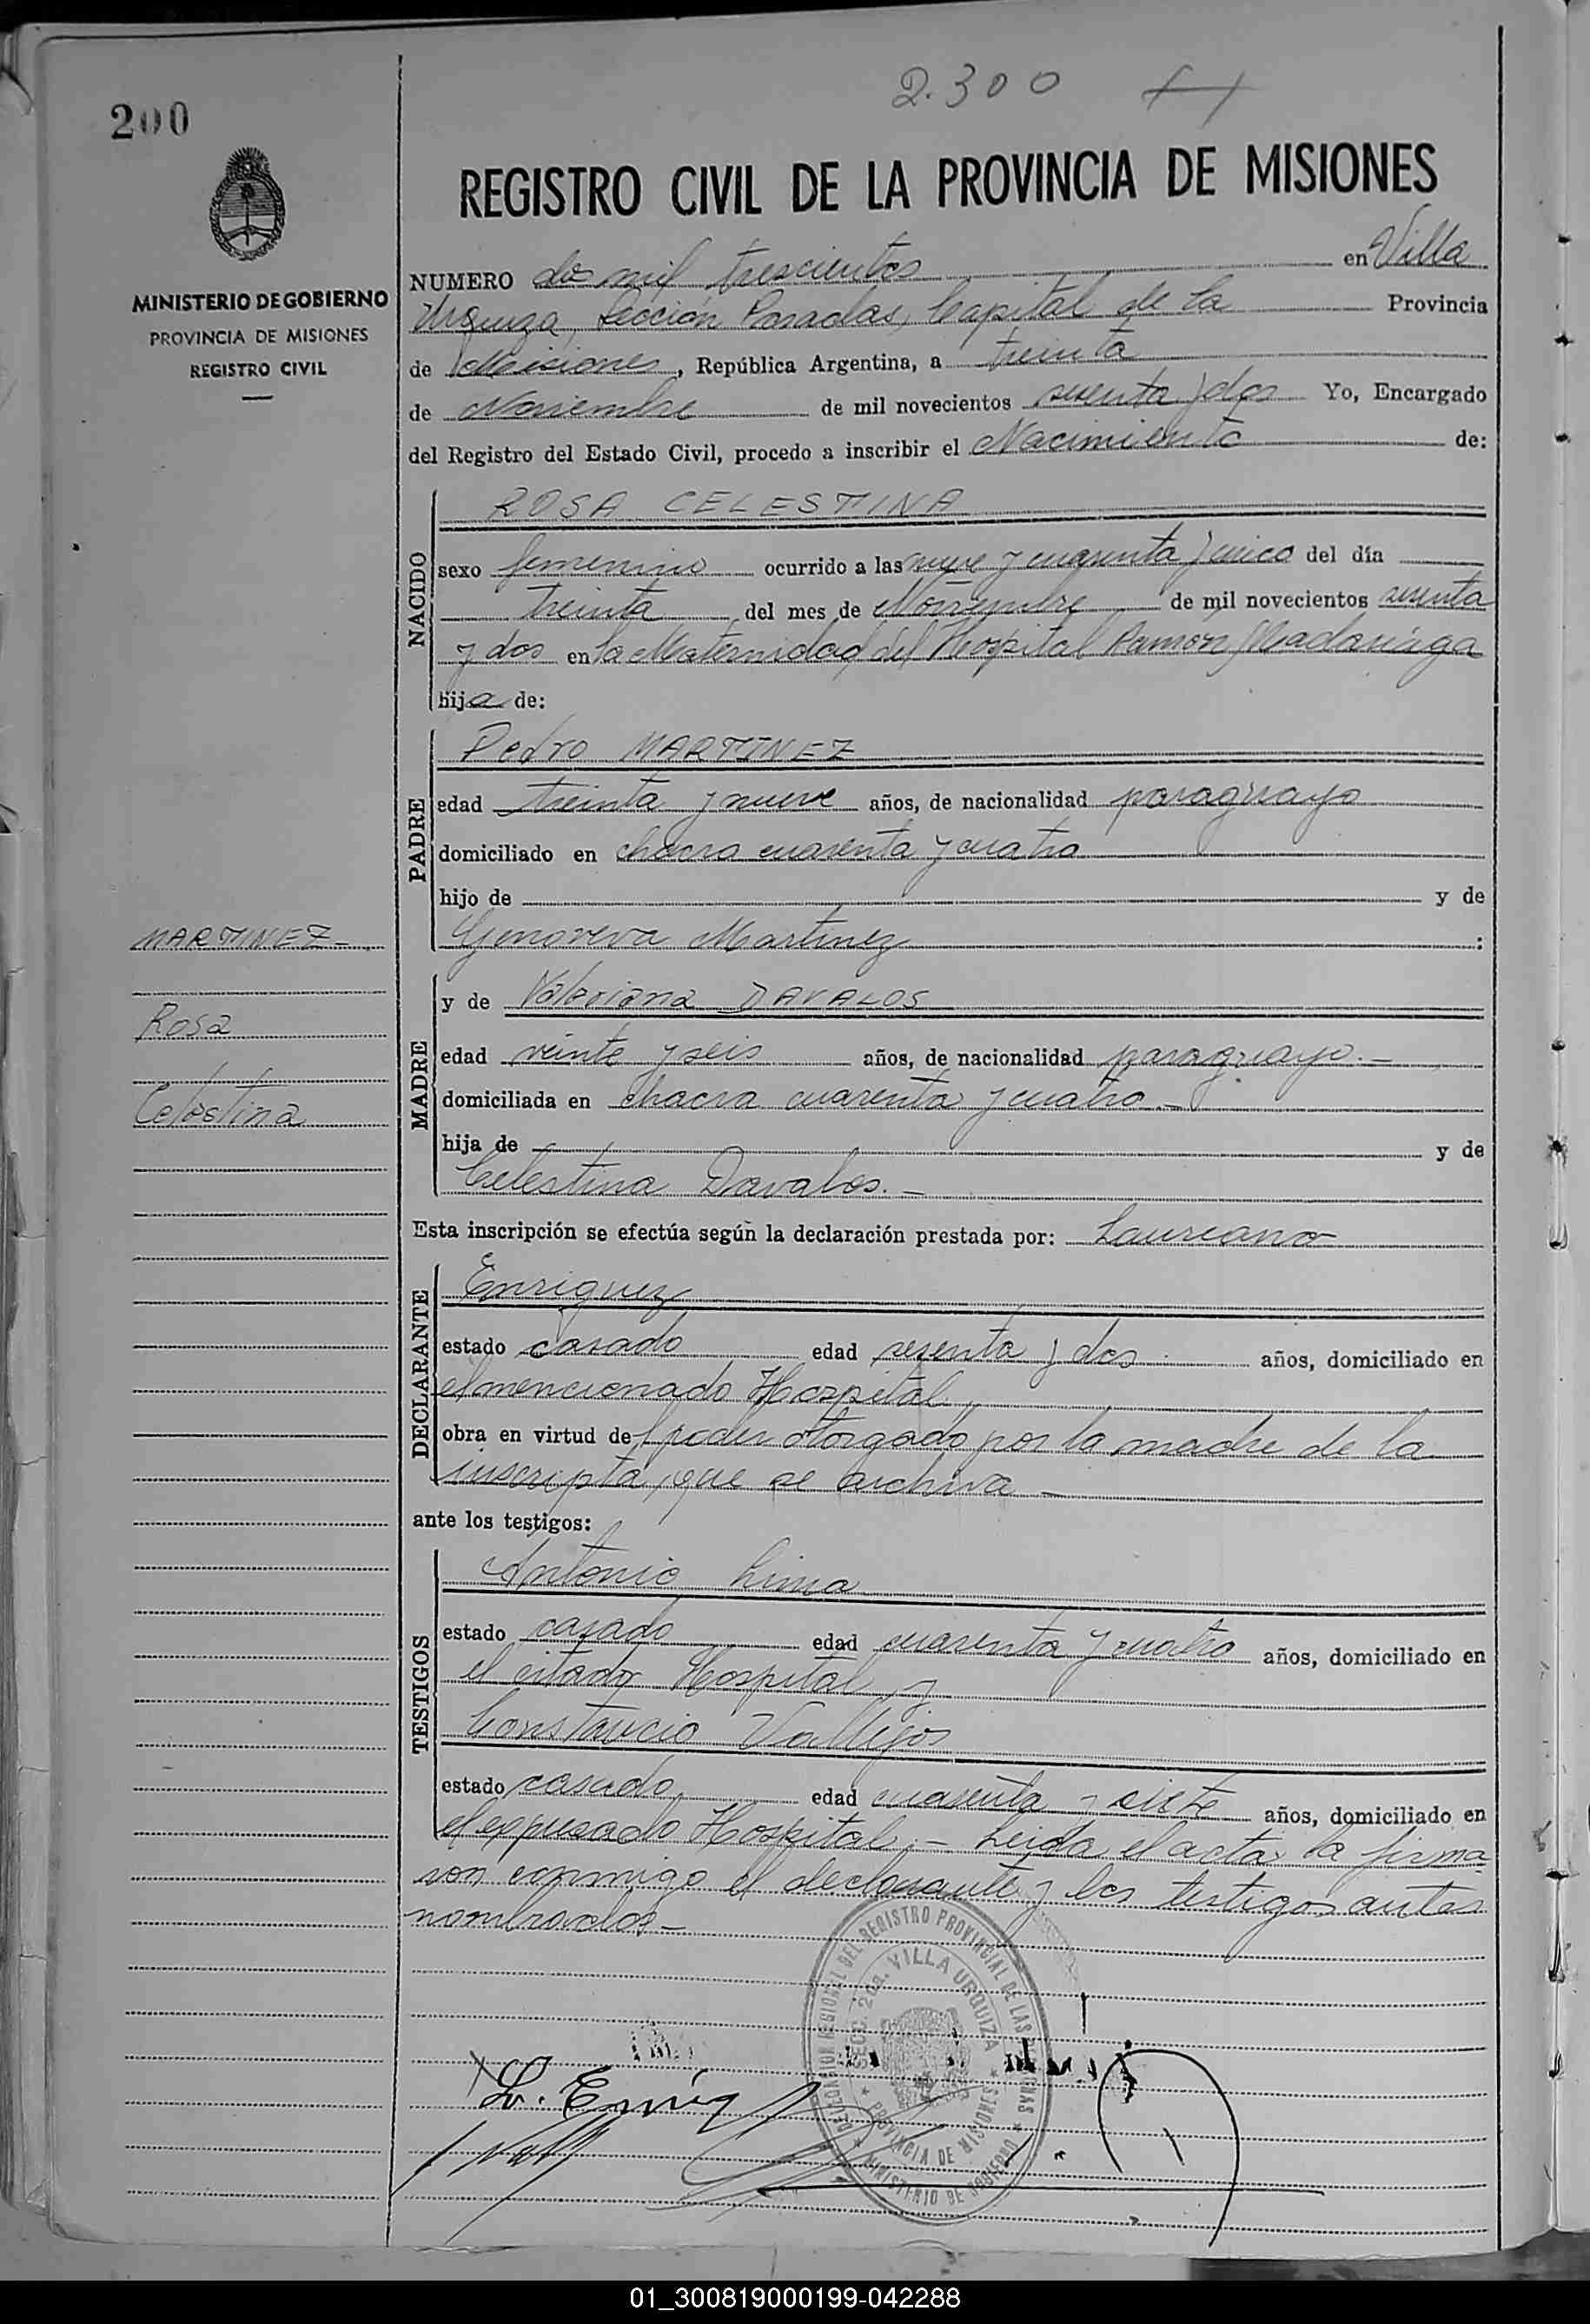 2.300
200
REGISTRO CIVIL DE LA PROVINCIA DE MISIONES
MINISTERIO DE GOBIERNO
PROVINCIA DE MISIONES
REGISTRO CIVIL
NUMERO dos mil trescientos en Villa
Urquiza, Sección Posadas, Capital de la Provincia
de Misiones, República Argentina, a treinta
de Noviembre de mil novecientos sesenta y dos Yo, Encargado
del Registro del Estado Civil, procedo a inscribir el Nacimiento de:
NACIDO
ROSA CELESTINA
sexo femenino ocurrido a las nueve y cuarenta y cinco del día
treinta del mes de Noviembre de mil novecientos sesenta
y dos en la Maternidad del Hospital Ramón Madariaga
hija de:
PADRE
Pedro MARTINEZ
edad treinta y nueve años, de nacionalidad paraguayo
domiciliado en chacra cuarenta y cuatro
hijo de y de
Genoveva Martinez :
MARTINEZ-
Rosa
Celestina
MADRE
y de Valeriana DAVALOS
edad veinte y seis años, de nacionalidad paraguaya.-
domiciliada en chacra cuarenta y cuatro.-
hija de y de
Celestina Davalos.-
Esta inscripción se efectúa según la declaración prestada por: Laureano
DECLARANTE
Enriquez
estado casado edad sesenta y dos años, domiciliado en
el mencionado Hospital
obra en virtud del poder otorgado por la madre de la
inscripta, que se archiva-
ante los testigos:
TESTIGOS
Antonio Lima
estado casado edad cuarenta y cuatro años, domiciliado en
el citado Hospital y
Constancio Vallejos
estado casado edad cuarenta y siete años, domiciliado en
el expresado Hospital.- Leida el acta, la firma
ron conmigo el declarante y los testigos antes
nombrados-
DELEGACION REGIONAL DEL REGISTRO PROVINCIAL DE LAS PERSONAS
SECC. 2da. VILLA URQUIZA
PROVINCIA DE MISIONES
MINISTERIO DE GOBIERNO
L. Enriq
01_300819000199-042288